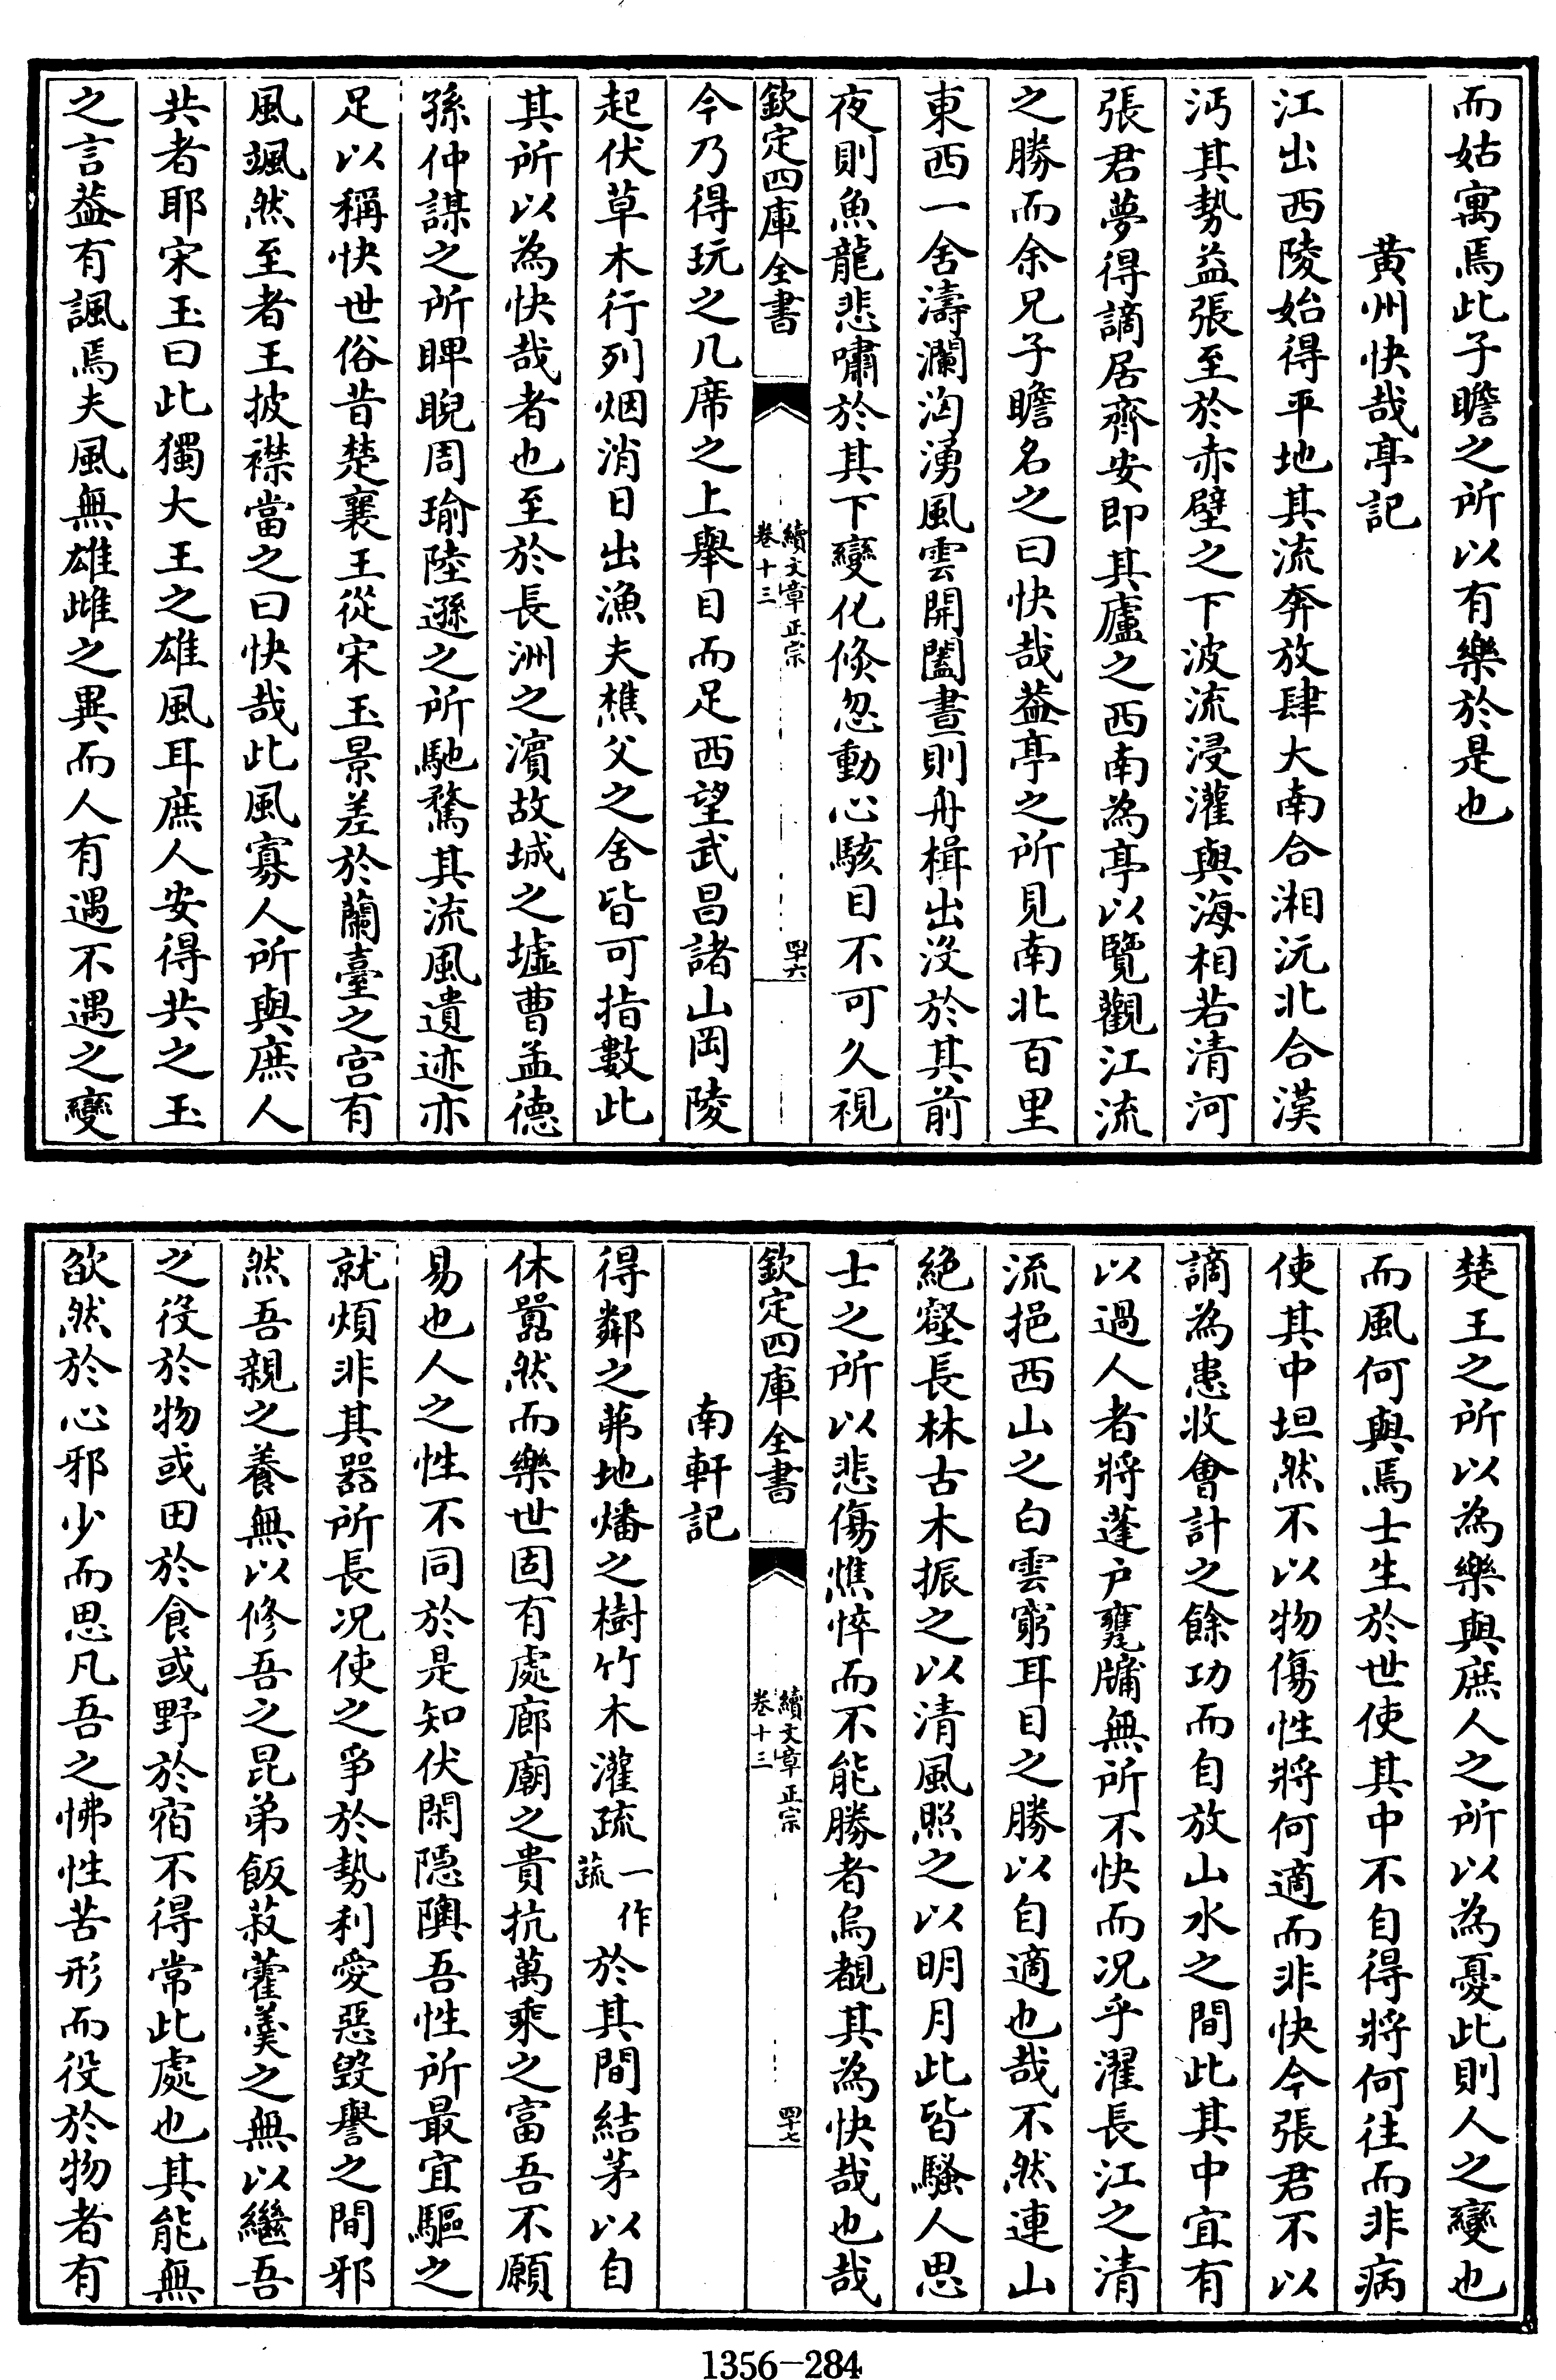 而姑寓焉此子瞻之所以有樂於是也
黄州快哉亭記
江出西陵始得平地其流奔放肆大南合湘沅北合漢
沔其勢益張至於赤壁之下波流浸灌與海相若清河
張君夢得謫居齊安即其廬之西南為亭以覽觀江流
之勝而余兄子瞻名之曰快哉葢亭之所見南北百里
東西一舍濤瀾洶湧風雲開闔晝則舟楫出沒於其前
夜則魚龍悲嘯於其下變化倏忽動心駭目不可久視
欽定四庫全書
續文章正宗
卷十三
四十六
今乃得玩之几席之上舉目而足西望武昌諸山岡陵
起伏草木行列烟消日出漁夫樵父之舍皆可指數此
其所以為快哉者也至於長洲之濱故城之墟曹孟德
孫仲謀之所睥睨周瑜陸遜之所馳騖其流風遺迹亦
足以稱快世俗昔楚襄王從宋玉景差於蘭臺之宫有
風颯然至者王披襟當之曰快哉此風寡人所與庶人
共者耶宋玉曰此獨大王之雄風耳庶人安得共之玉
之言葢有諷焉夫風無雄雌之異而人有遇不遇之變
楚王之所以為樂與庶人之所以為憂此則人之變也
而風何與焉士生於世使其中不自得將何往而非病
使其中坦然不以物傷性將何適而非快今張君不以
謫為患收會計之餘功而自放山水之間此其中宜有
以過人者將蓬户甕牖無所不快而况乎濯長江之清
流挹西山之白雲窮耳目之勝以自適也哉不然連山
絶壑長林古木振之以清風照之以明月此皆騷人思
士之所以悲傷憔悴而不能勝者烏覩其為快哉也哉
欽定四庫全書
續文章正宗
卷十三
四十七
南軒記
得鄰之茀地燔之樹竹木灌疏一作蔬於其間結茅以自
休嚣然而樂世固有處廊廟之貴抗萬乘之富吾不願
易也人之性不同於是知伏閑隱隩吾性所最宜驅之
就煩非其器所長况使之爭於勢利愛惡毁譽之間邪
然吾親之養無以修吾之昆弟飯菽藿羹之無以繼吾
之役於物或田於食或野於宿不得常此處也其能無
欿然於心邪少而思凡吾之怫性苦形而役於物者有
1356-284